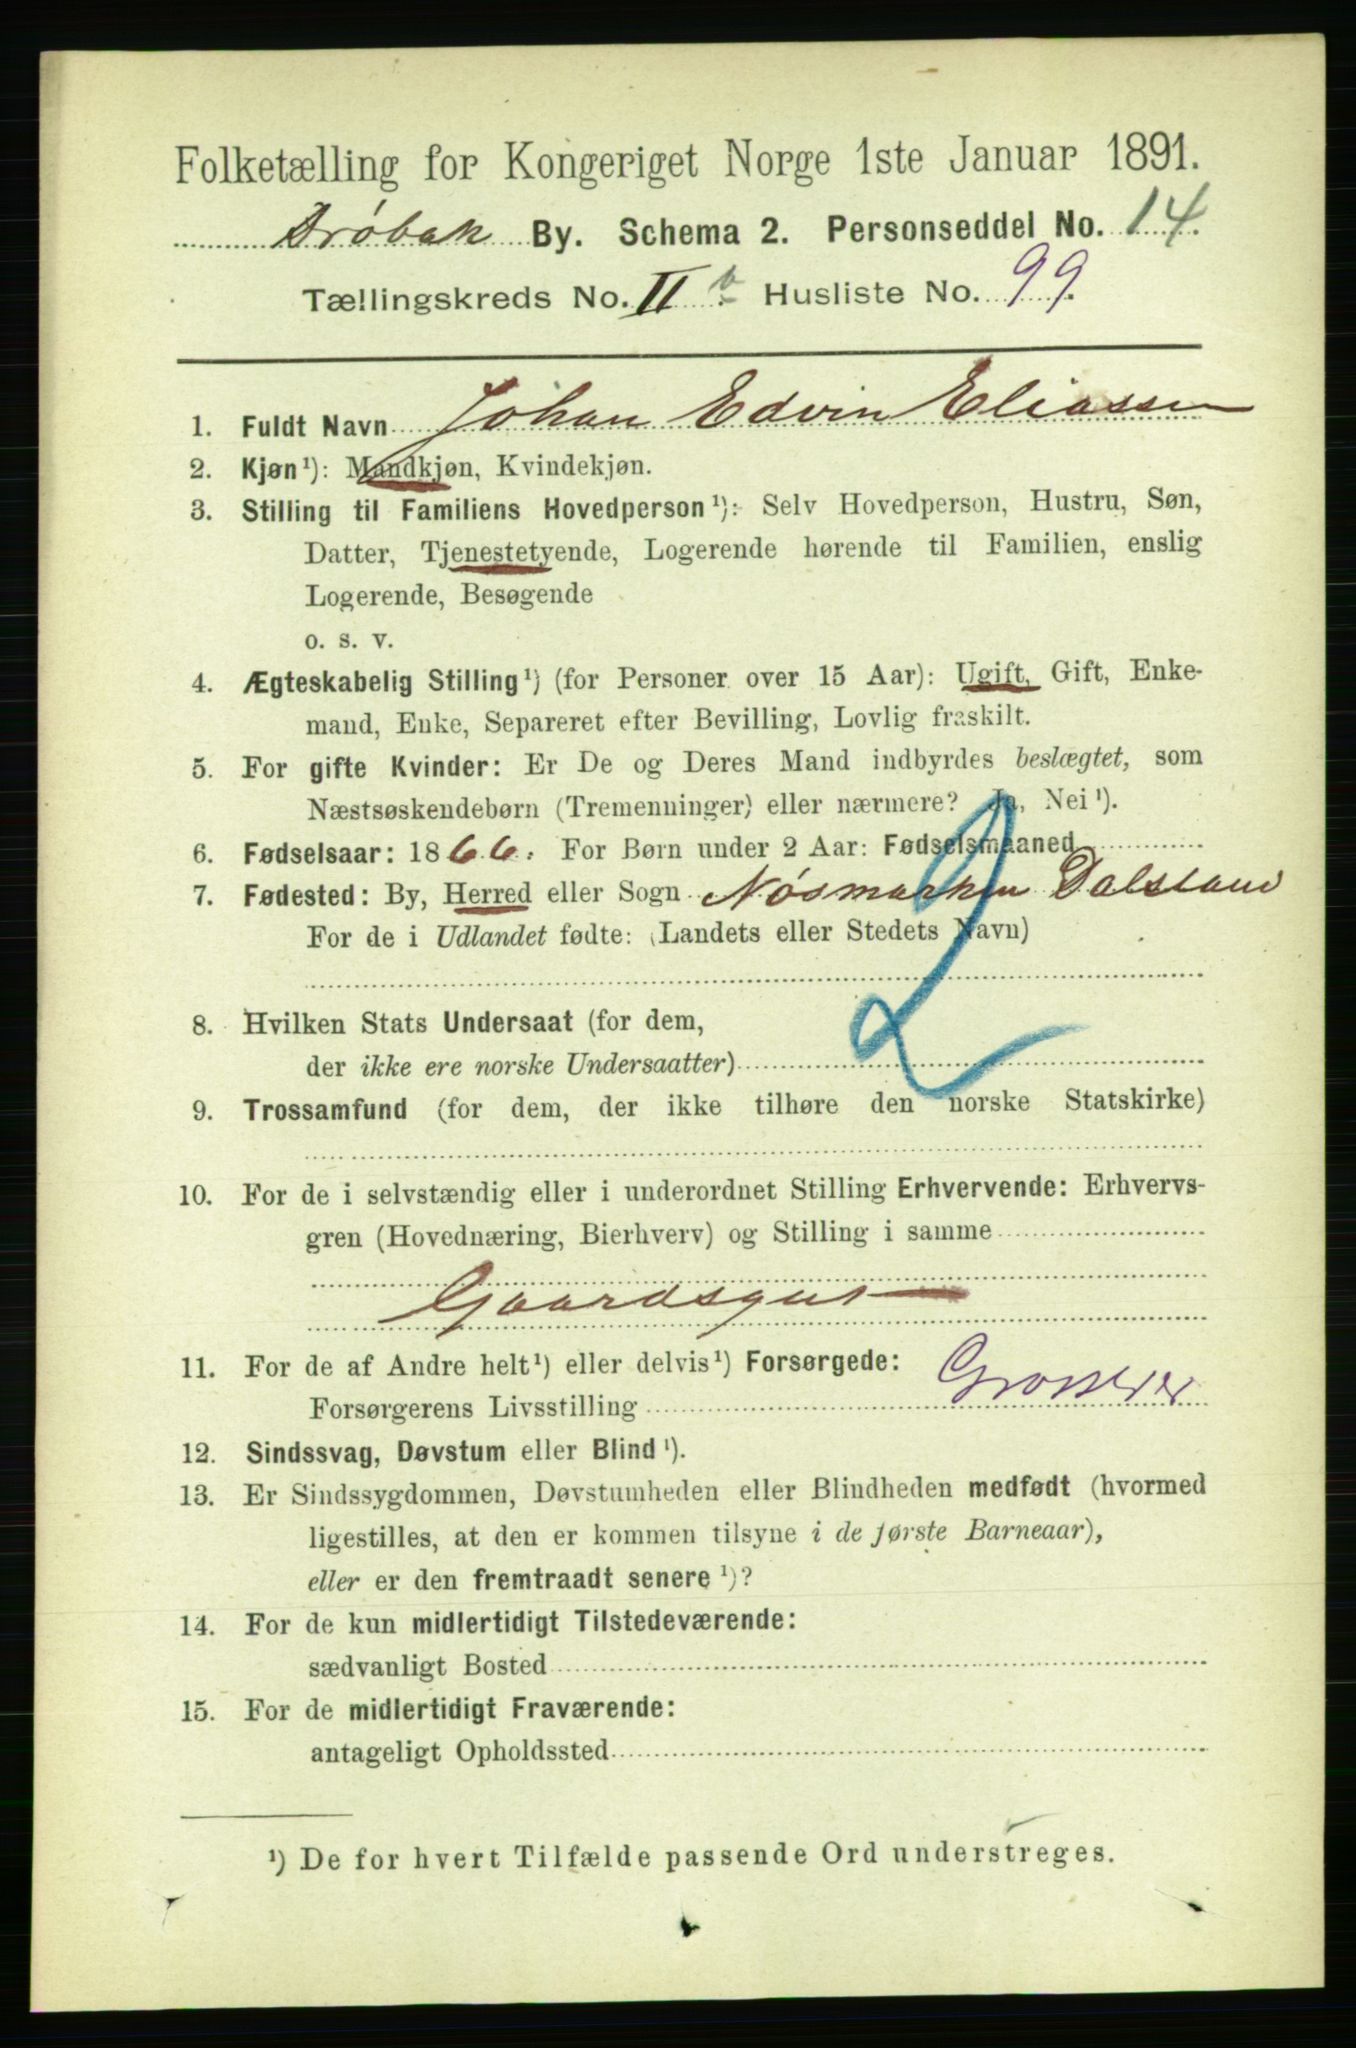 Folketælling for Kongeriget Norge 1ste Januar 1891.
Drøbak By. Schema 2. Personseddel No. 14.
Tællingskreds No. II b Husliste No. 99.
1. Fuldt Navn Johan Edvin Eliassen
2. Kjøn¹): Mandkjøn, Kvindekjøn.
3. Stilling til Familiens Hovedperson¹): Selv Hovedperson, Hustru, Søn,
Datter, Tjenestetyende, Logerende hørende til Familien, enslig
Logerende, Besøgende
o. s. v.
4. Ægteskabelig Stilling¹) (for Personer over 15 Aar): Ugift, Gift, Enke-
mand, Enke, Separeret efter Bevilling, Lovlig fraskilt.
5. For gifte Kvinder: Er De og Deres Mand indbyrdes beslægtet, som
Næstsøskendebørn (Tremenninger) eller nærmere? Ja, Nei¹).
6. Fødselsaar: 1866. For Børn under 2 Aar: Fødselsmaaned
7. Fødested: By, Herred eller Sogn Nøsmarken Dalsland
For de i Udlandet fødte: (Landets eller Stedets Navn)
8. Hvilken Stats Undersaat (for dem,
der ikke ere norske Undersaatter)
9. Trossamfund (for dem, der ikke tilhøre den norske Statskirke)
10. For de i selvstændig eller i underordnet Stilling Erhvervende: Erhvervs-
gren (Hovednæring, Bierhverv) og Stilling i samme
Gaardsgut
11. For de af Andre helt¹) eller delvis¹) Forsørgede:
Forsørgerens Livsstilling
12. Sindssvag, Døvstum eller Blind¹).
13. Er Sindssygdommen, Døvstumheden eller Blindheden medfødt (hvormed
ligestilles, at den er kommen tilsyne i de første Barneaar),
eller er den fremtraadt senere¹)?
14. For de kun midlertidigt Tilstedeværende:
sædvanligt Bosted
15. For de midlertidigt Fraværende:
antageligt Opholdssted
¹) De for hvert Tilfælde passende Ord understreges.